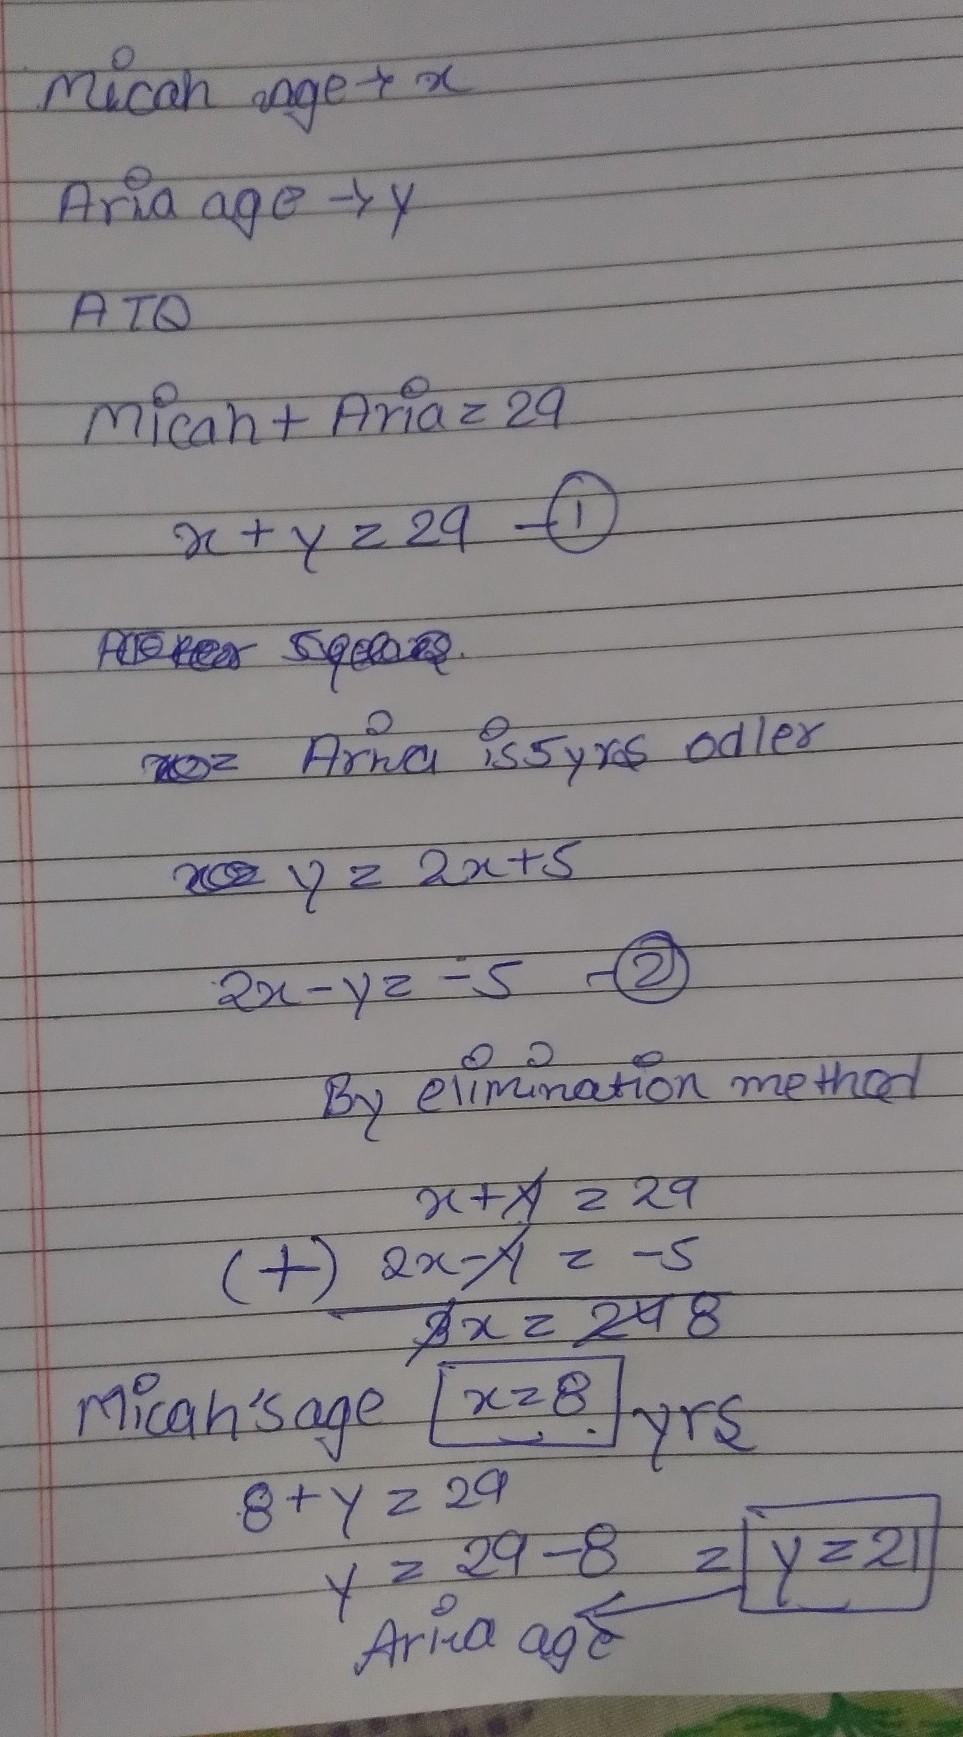 Micah age → x
Aria age → y
ATQ
Micah + Aria = 29
x + y = 29 - ①
Aria is 5 yrs odler
y = 2x+5
2x-y = -5 - ②
By elimination method
x+y = 29
(+) 2x-y = -5
3x = 24 8
Micah's age x=8 yrs
8+y = 29
y = 29-8 = y=21
Aria age